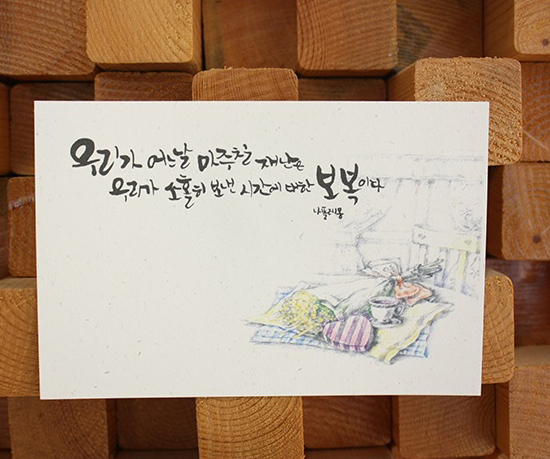 우리가 어느날 마주칠 재난은
우리가 소홀히 보낸 시간에 대한 보복이다
나폴레옹